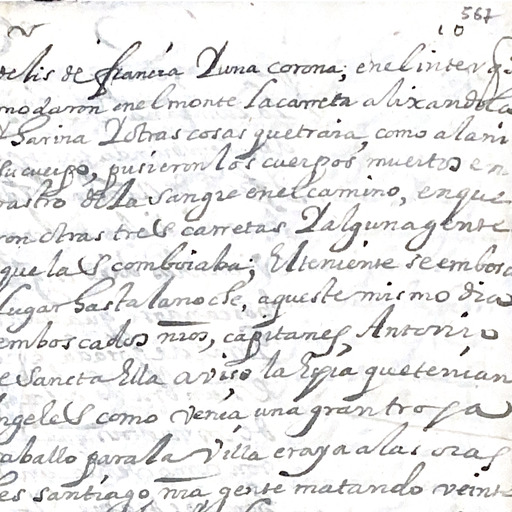 567
10
de lis de francia Y una corona; en el inter q
modaron en el monte la carreta alixandola
Y harina Y otras cosas que traia, como a la ni
su cuerpo, pusieron los cuerpos muertos en
rastro de la sangre en el camino, en que
ron otras tres carretas Y alguna gente
que las comboiaba; El teniente se embosc
lugar hasta la noche, a queste mismo dia
emboscados nros, capitanes, Antonio
e sancta Ella aviso la Espia que tenian
ngeles como venia una gran tropa
aballo para la Villa era ya a las oras
les santiago nra gente matando veinte